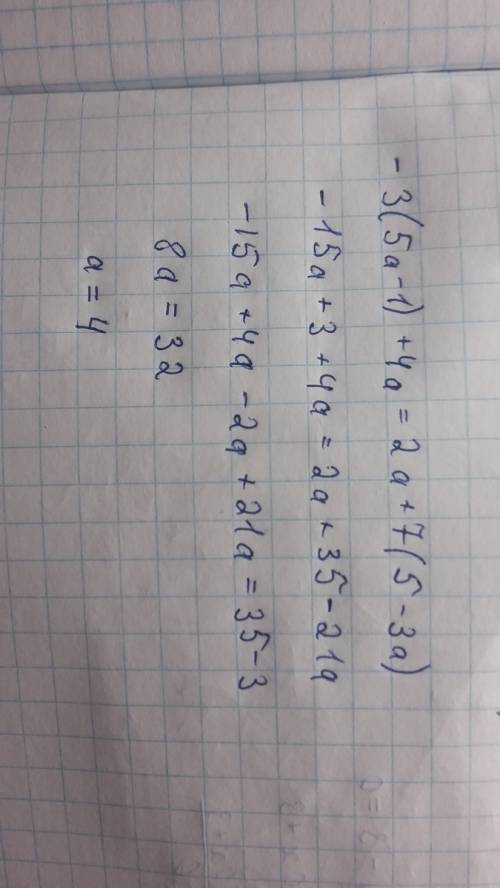 - 3(5a-1) + 4a = 2a + 7(5 - 3a)
- 15a + 3 + 4a = 2a + 35 - 21a
- 15a + 4a - 2a + 21a = 35 - 3
8a = 32
a = 4